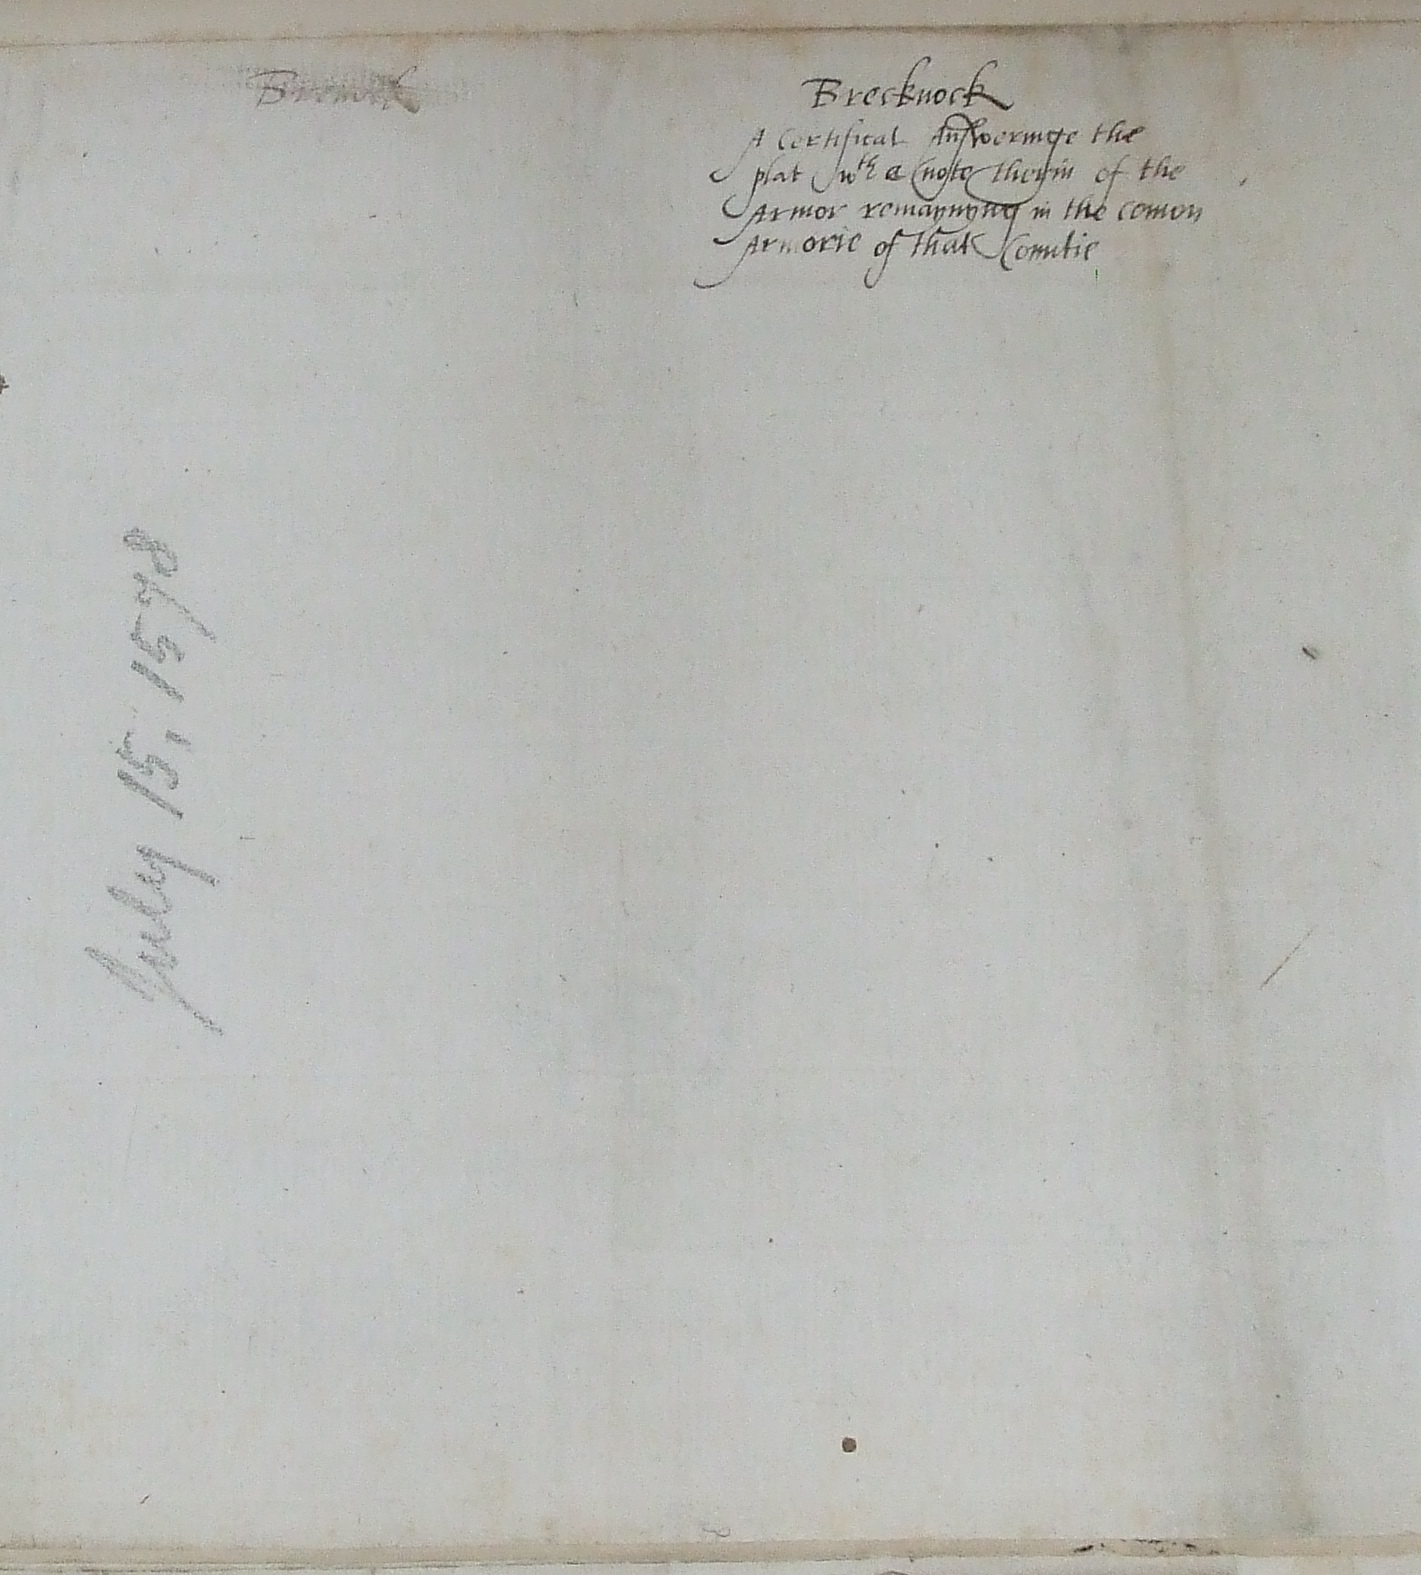 Brecknock
A Certificat Answeringe the
plat wth a note therin of the
Armor remaynyng in the comon
Armorie of that Countie
July 15, 1578